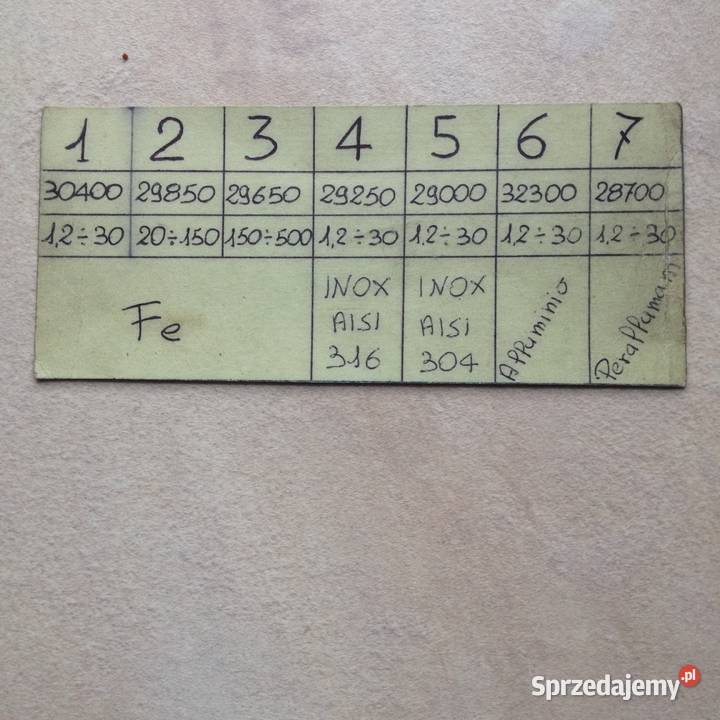 1 2 3 4 5 6 7
30400 29850 29650 29250 29000 32300 28700
1,2÷30 20÷150 150÷500 1,2÷30 1,2÷30 1,2÷30 1,2÷30
Fe
INOX
AISI
316
INOX
AISI
304
Alluminio
Sprzedajemy.pl